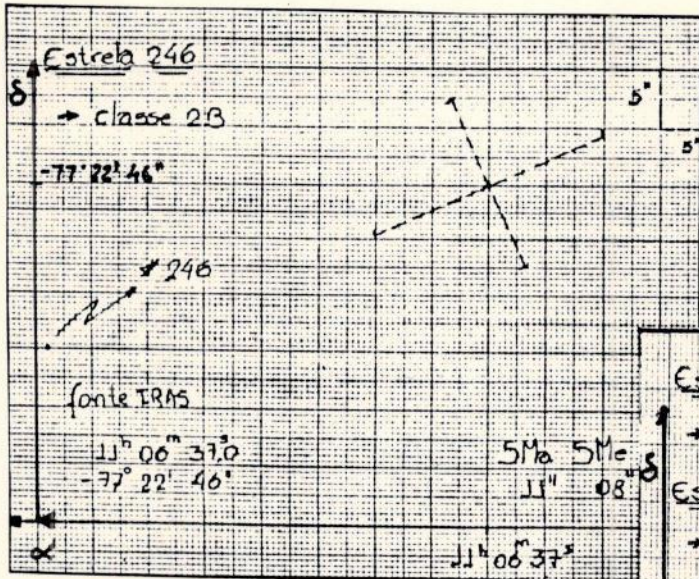 Estrela 246
δ
→ classe 2B
5"
5"
-77° 22' 46"
* 246
fonte IRAS
11ʰ 06ᵐ 37,0ˢ
-77° 22' 46"
SMa SMe
11" 08"
α
11ʰ 06ᵐ 37ˢ
Es
δ
Es